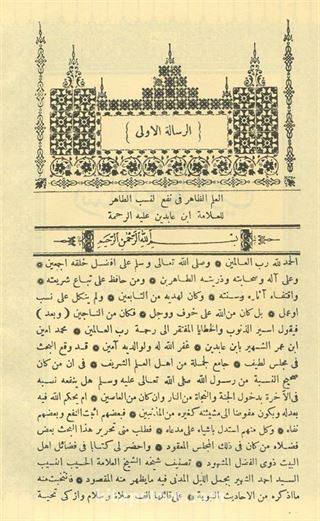 الرسالة الاولى
العلم الظاهر فى نفع النسب الطاهر
للعلامة ابن عابدين عليه الرحمة
بسم الله الرحمن الرحيم
الحمد لله رب العالمين * وصلى الله تعالى وسلم على افضل خلقه اجمعين *
وعلى آله وصحابته وذريته الطاهرين * ومن حافظ على اتباع شريعته *
واقتفاء آثاره وسنته * وكان لهديه من التابعين * ولم يتكل على نسب
اوعمل * بل كان من الله على خوف ووجل * فكان من الناجين (وبعد)
فيقول اسير الذنوب والخطايا المفتقر الى رحمة رب العالمين * محمد امين
ابن عمر الشهير بابن عابدين * غفر الله له ولوالديه آمين * قد وقع البحث
فى مجلس لطيف * جامع لجملة من اهل العلم الشريف * فى ان من كان
صحيح النسبة من رسول الله صلى الله تعالى عليه وسلم هل ينفعه نسبه
فى الآخرة بدخول الجنة والنجاة من النار وان كان من العاصين * ام يحكم الله فيه
بعدله ويكون مفوضا الى مشيئته كغيره من المذنبين * فبعضهم اثبت النفع وبعضهم
نفاه * وكل منهم استدل باشياء على مدعاه * فطلب منى تحرير هذا البحث بعض
فضلاء من كان فى ذلك المجلس المعقود * واحضر لى كتابا فى فضائل اهل
البيت ذوى الفضل المشهود * تصنيف شيخه الشيخ العلامة الحسيب النسيب
السيد احمد الشهير بجمل الليل المدنى فيه مايظهر منه المقصود * فانتخبت منه
ماذكره من الاحاديث النبوية * على قائلها الف صلاة وسلام وازكى تحية